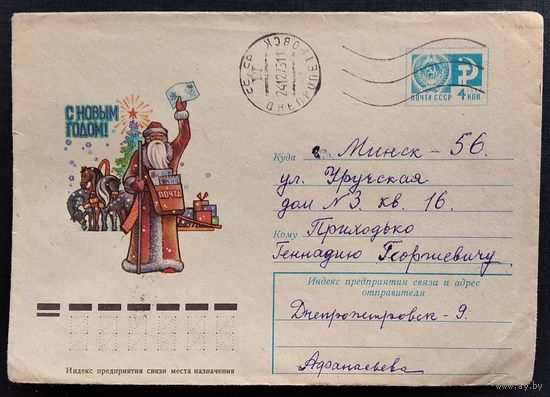 С НОВЫМ
ГОДОМ!
ПОЧТА
ДНЕПРОПЕТРОВСК
241273 11
ПОЧТА СССР 4 КОП
Куда г. Минск - 56.
ул. Уручская
дом №3 кв. 16.
Кому Приходько
Геннадию Георгиевичу
Индекс предприятия связи и адрес
отправителя
Днепропетровск - 9.
Афанасьева
Индекс предприятия связи места назначения
www.ay.by